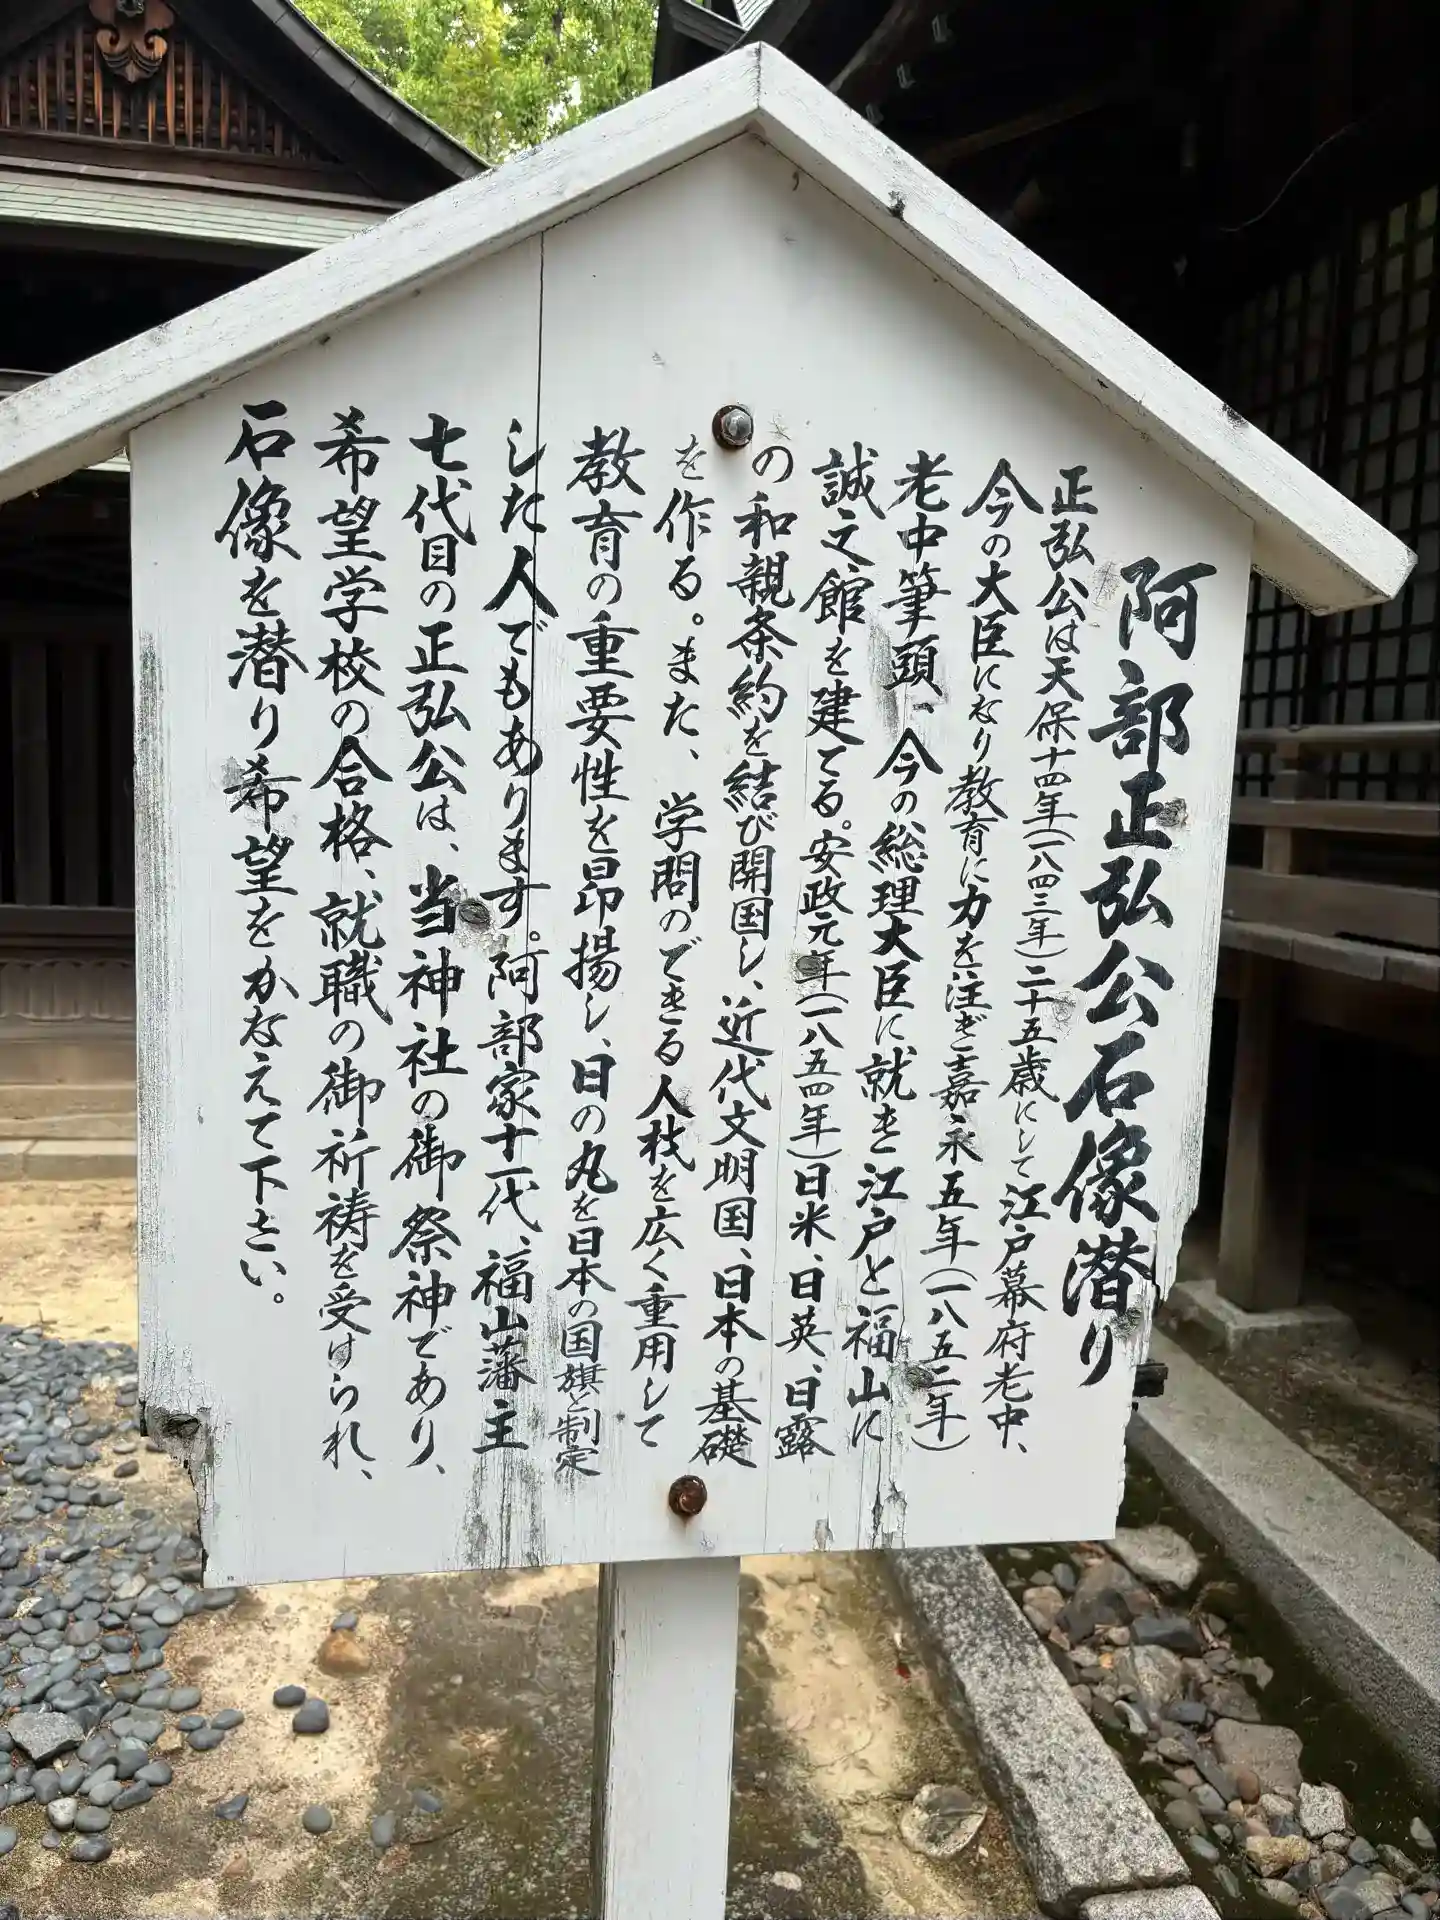 阿部正弘公石像潜り
正弘公は天保十四年(一八四三年)二十五歳にして江戸幕府老中、
今の大臣になり教育に力を注ぎ嘉永五年(一八五二年)
老中筆頭、今の総理大臣に就き江戸と福山に
誠之館を建てる。安政元年(一八五四年)日米、日英、日露
の和親条約を結び開国し、近代文明国、日本の基礎
を作る。また、学問のできる人材を広く重用して
教育の重要性を昂揚し、日の丸を日本の国旗と制定
した人でもあります。阿部家十一代、福山藩主
七代目の正弘公は、当神社の御祭神であり、
希望学校の合格、就職の御祈祷を受けられ、
石像を潜り希望をかなえて下さい。